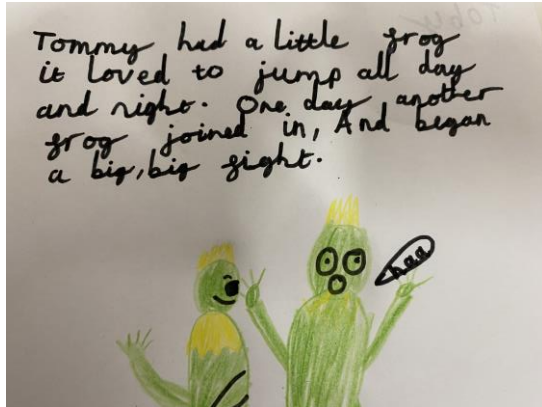 Tommy had a little frog
it loved to jump all day
and night. One day another
frog joined in, And began
a big, big fight.
haa